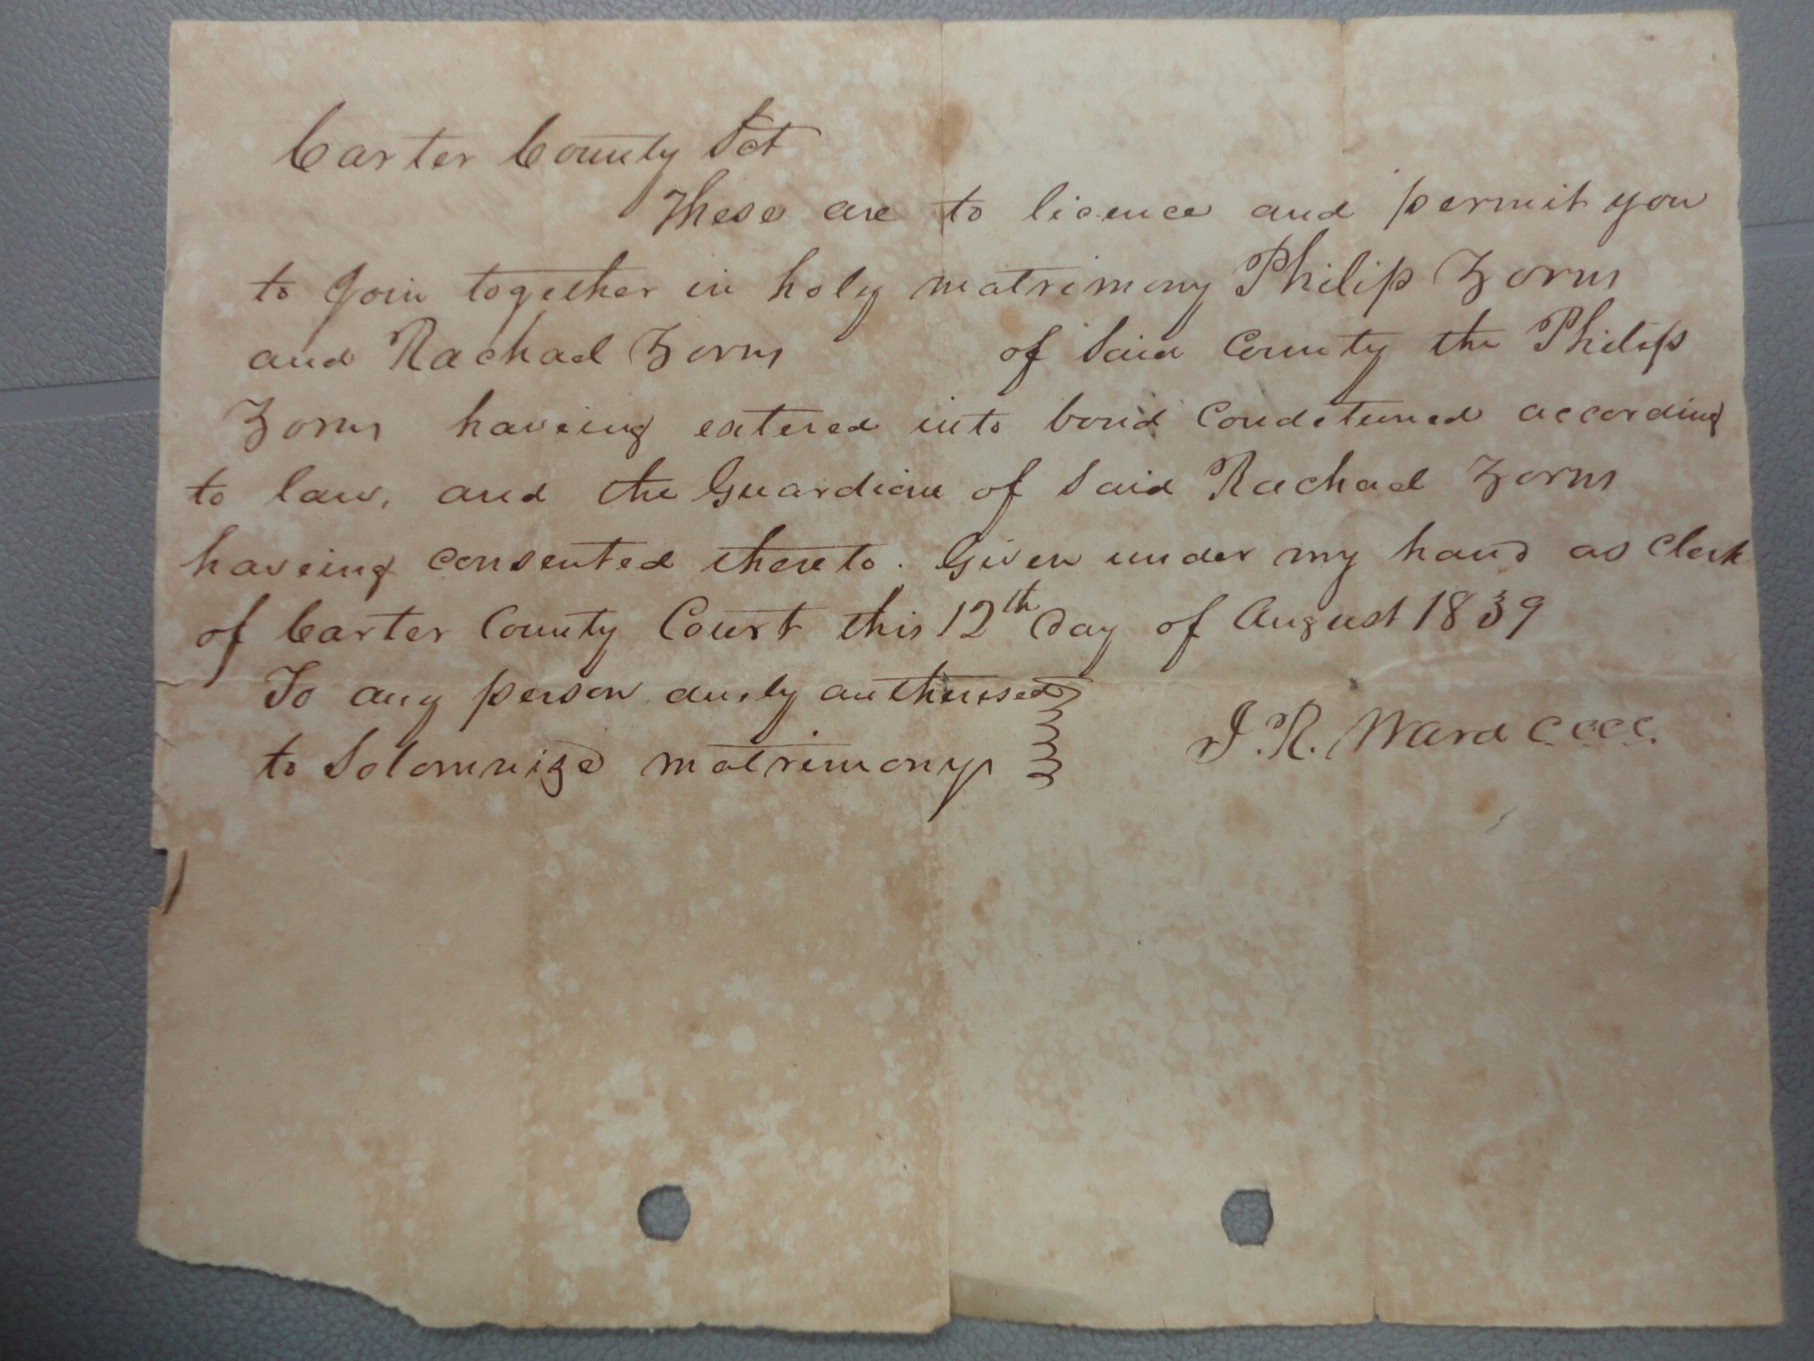 Carter County Sct
These are to licence and permit you
to Join together in holy matrimony Philip Zorns
and Rachael Zorns of Said County the Philip
Zorns haveing entered into bond Condetuned according
to law, and the Guardian of Said Rachael Zorns
haveing consented thereto. Given under my hand as Clerk
of Carter County Court this 12th Day of August 1839
To any person duly authorised
to Solomnize matrimony
J. R. Ward CCCC.